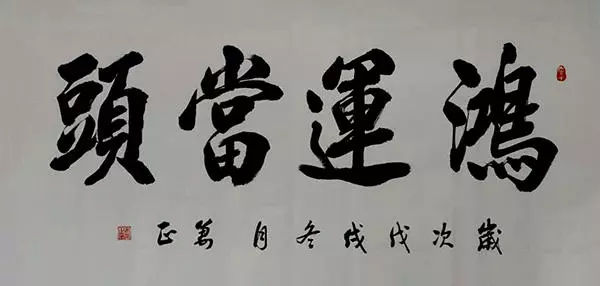 鴻運當頭
歲次戊戌冬月萬正